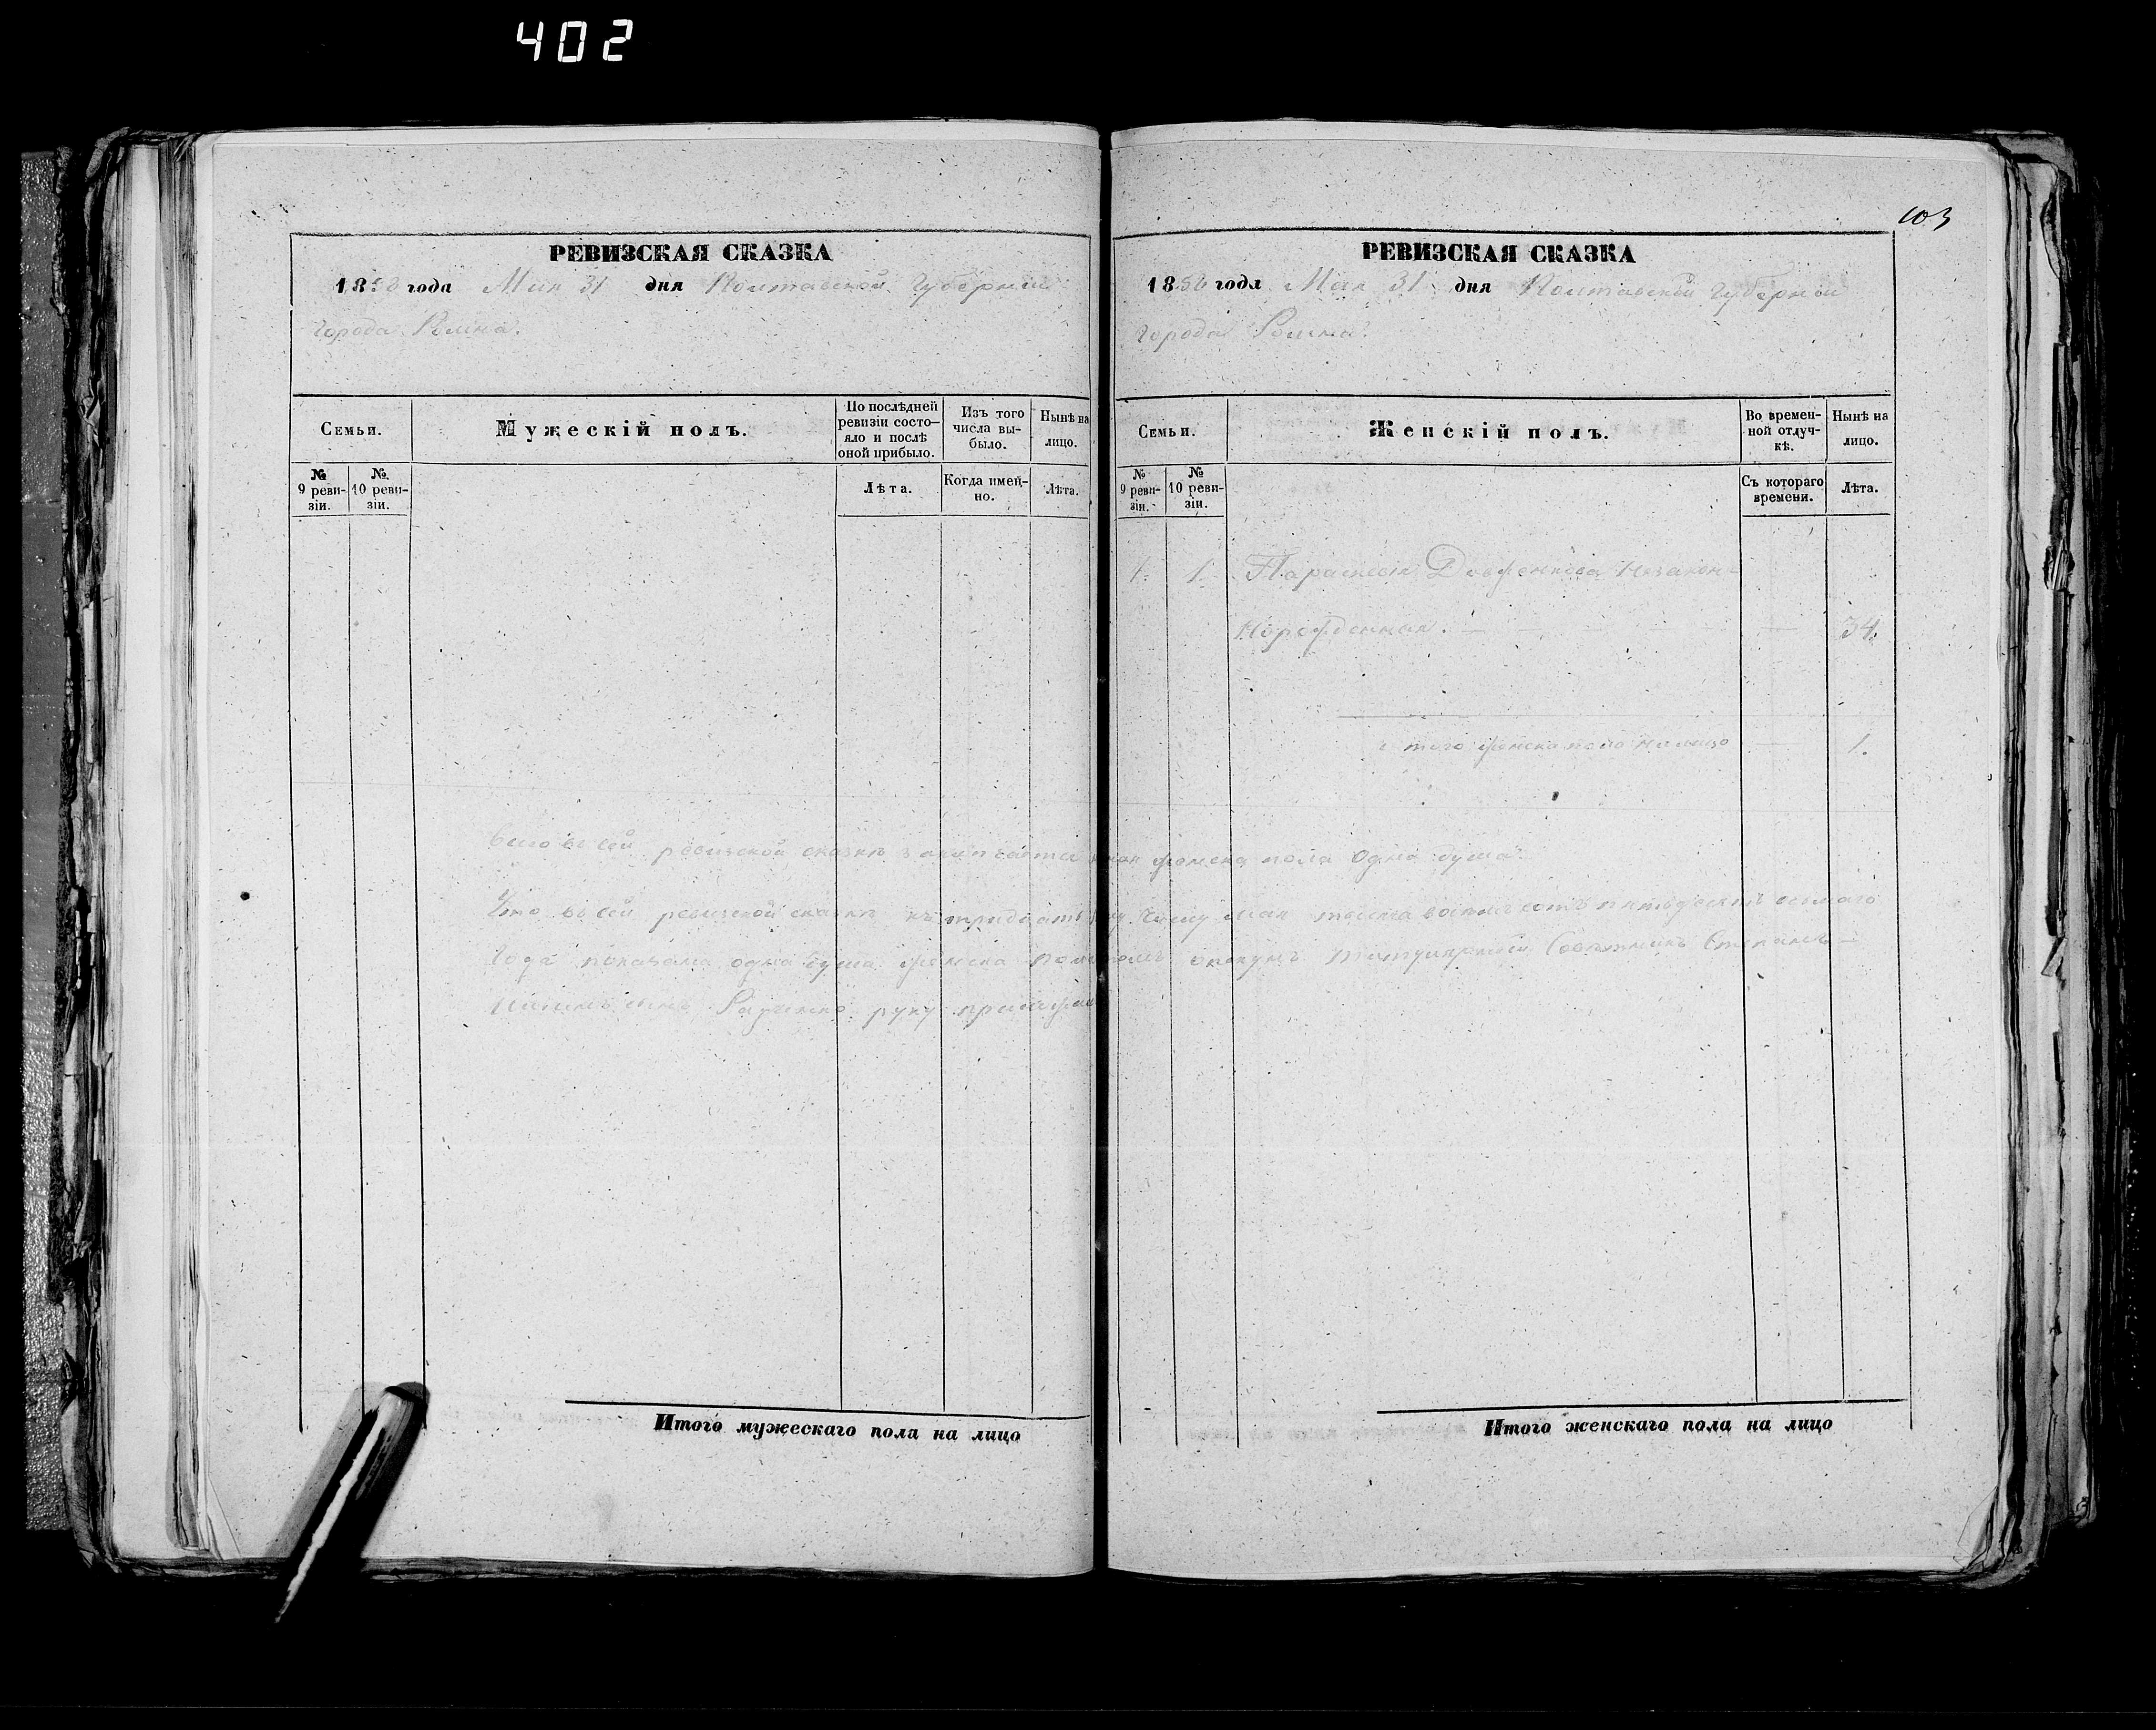 402
103
РЕВИЗСКАЯ СКАЗКА
1858 года Мая 31 дня Полтавской Губерніи
города Ромна.
Семьи.
Мужескій полъ.
По послѣдней ревизіи состояло и послѣ оной прибыло.
Изъ того числа выбыло.
Нынѣ на лицо.
№ 9 ревизіи.
№ 10 ревизіи.
Лѣта.
Когда имен­но.
Лѣта.
Итого мужескаго пола на лицо
РЕВИЗСКАЯ СКАЗКА
1858 года Мая 31 дня Полтавской Губерніи
города Ромна.
Семьи.
Женскій полъ.
Во временной отлучкѣ.
Нынѣ на лицо.
№ 9 ревизіи.
№ 10 ревизіи.
Съ котораго времени.
Лѣта.
1. 1. Параскевія Довженкова Незакон-
норожденная. 34.
Итого женска пола на лицо 1.
Всего въ сей ревизской сказкѣ заключается женска пола одна душа.
Что въ сей ревизской сказкѣ къ тридцать первому мая тысяча восемь сотъ пятьдесятъ осьмаго
года показана одна душа женска пола въ томъ опекунъ Титулярный Совѣтникъ Степанъ
сынъ руку приложилъ
Итого женскаго пола на лицо